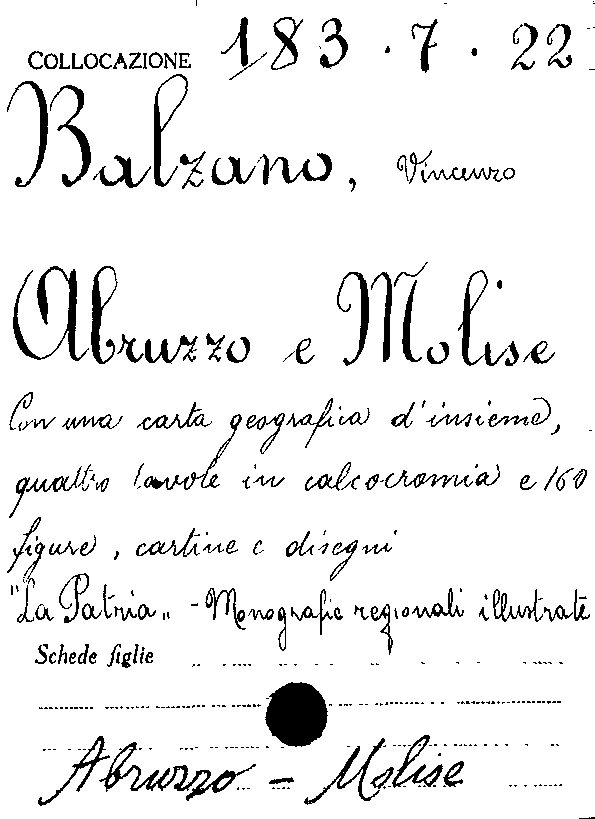 COLLOCAZIONE 183 · 7 · 22
Balzano, Vincenzo
Abruzzo e Molise
Con una carta geografica d'insieme,
quattro tavole in calcocromia e 160
figure, cartine e disegni
"La Patria„ - Monografie regionali illustrate
Schede figlie
Abruzzo - Molise